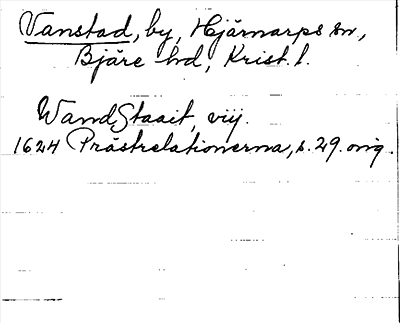 Vanstad, by, Hjärnarps sn,
Bjäre hd, Krist. l.
WandStaait, viij.
1624 Prästrelationerna, s. 29. orig.